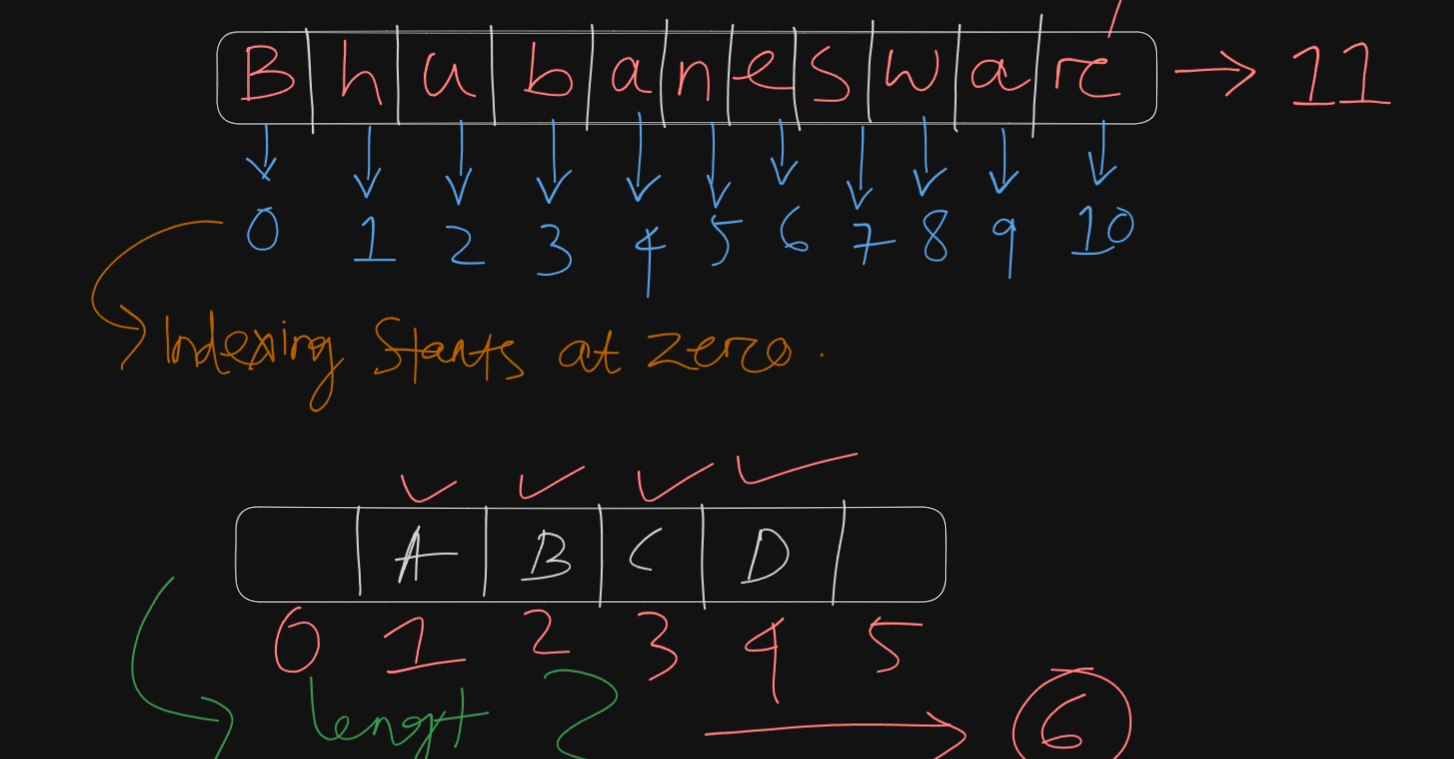 B h u b a n e s w a r → 11
0 1 2 3 4 5 6 7 8 9 10
Indexing Starts at zero.
A B C D
0 1 2 3 4 5
lengt → 6